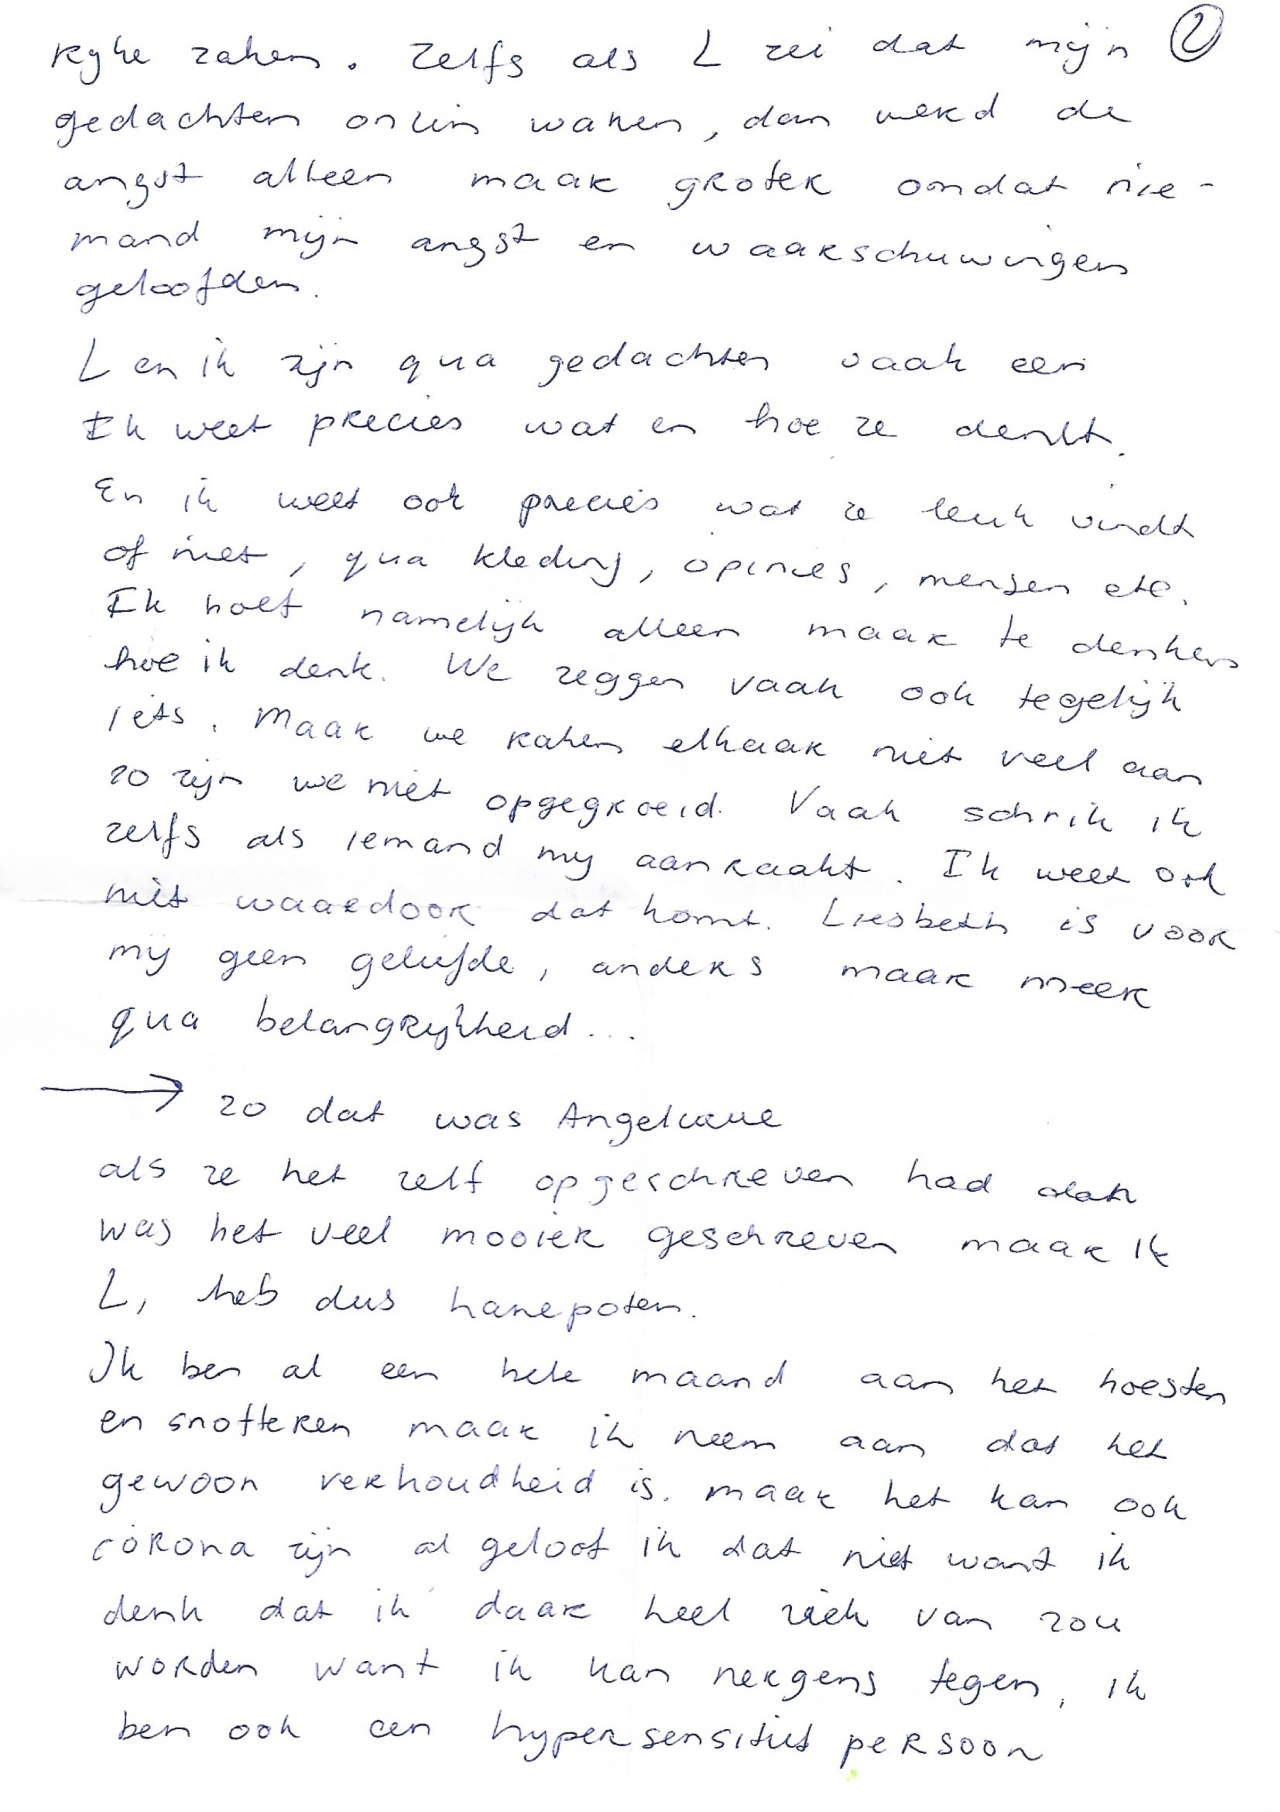 rijke zaken. Zelfs als L zei dat mijn 2
gedachten onzin waren, dan werd de
angst alleen maar groter omdat nie-
mand mijn angst en waarschuwingen
geloofden.
L en ik zijn qua gedachten vaak een
Ik weet precies wat en hoe ze denkt.
En ik weet ook precies wat ze leuk vindt
of niet, qua kleding, opinies, mensen etc.
Ik hoef namelijk alleen maar te denken
hoe ik denk. We zeggen vaak ook tegelijk
iets. Maar we raken elkaar niet veel aan
zo zijn we niet opgegroeid. Vaak schrik ik
zelfs als iemand mij aanraakt. Ik weet ook
niet waardoor dat komt. Liesbeth is voor
mij geen geliefde, anders maar meer
qua belangrijkheid...
→ zo dat was
als ze het zelf opgeschreven had dan
was het veel mooier geschreven maar ik
L, heb dus hanepoten.
Ik ben al een hele maand aan het hoesten
en snotteren maar ik neem aan dat het
gewoon verkoudheid is. maar het kan ook
corona zijn al geloof ik dat niet want ik
denk dat ik daar heel ziek van zou
worden want ik kan nergens tegen, ik
ben ook een hypersensitief persoon